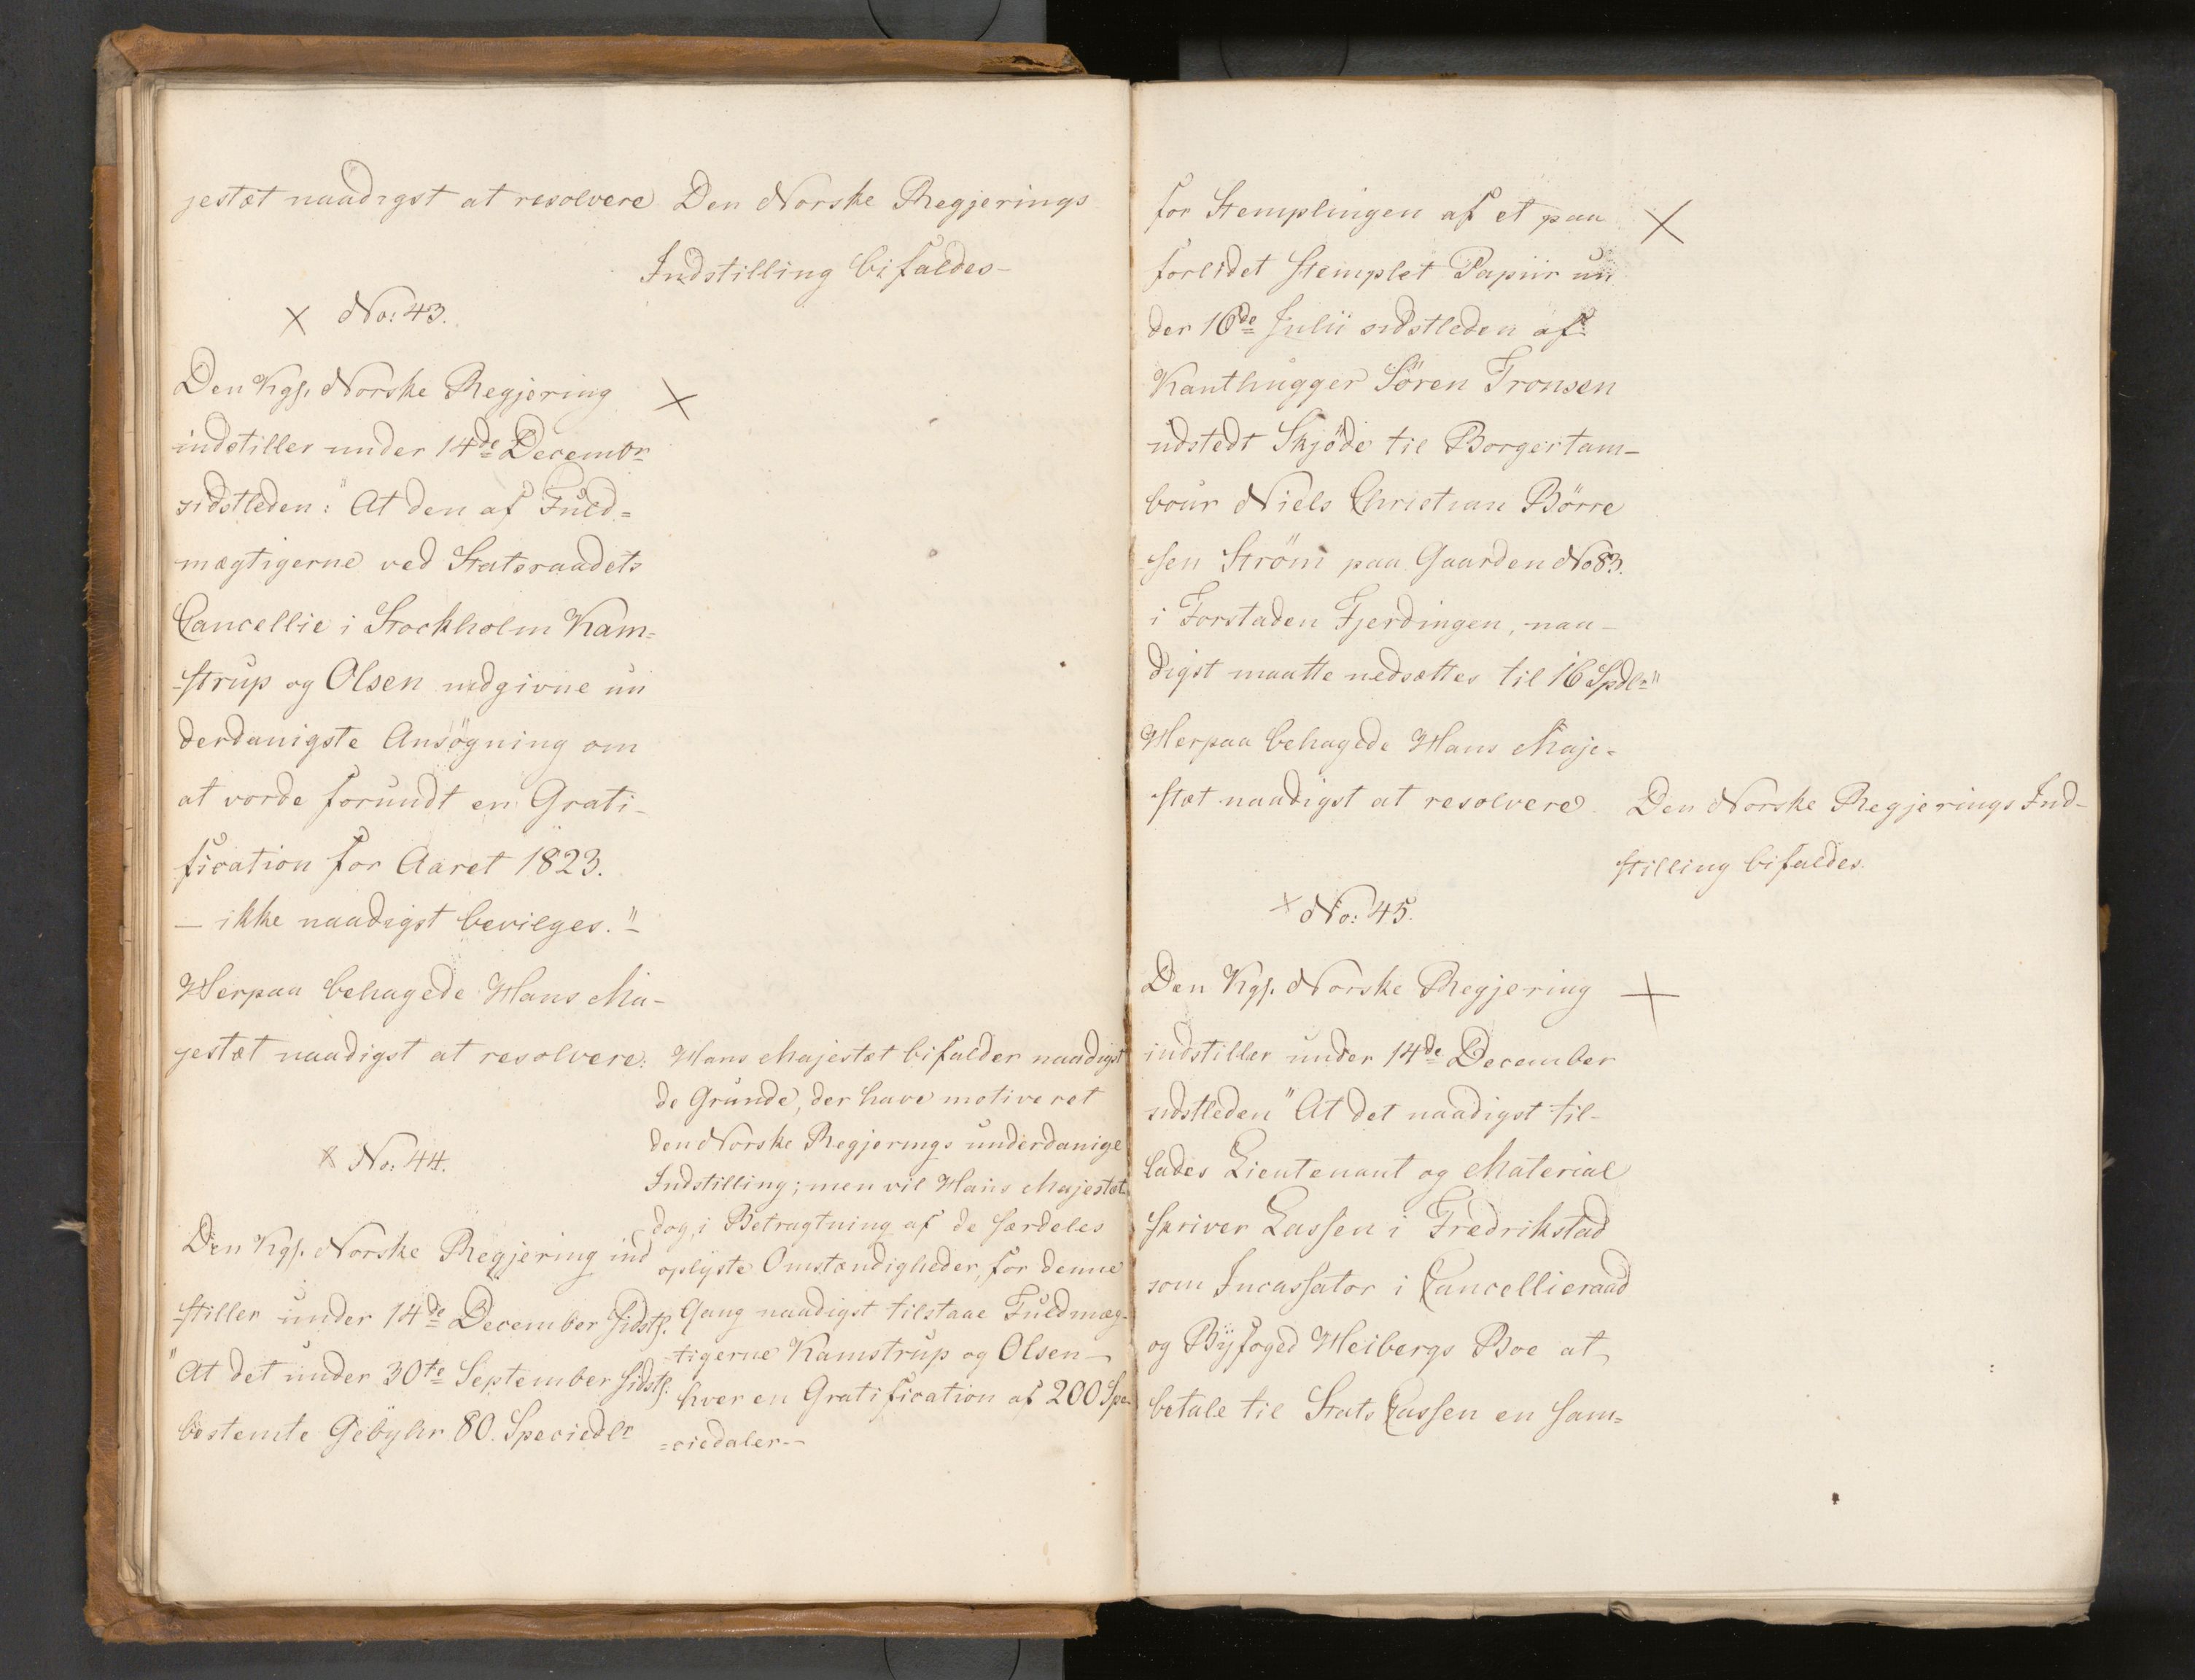 jestæt naadigst at resolvere
Den Norske Regjerings
Indstilling bifaldes-
X No: 43.
Den Kgl. Norske Regjering
X
indstiller under 14de Decembr
sidstleden: "At den af Fuld=
mægtigerne ved Statsraadets
Cancellie i Stockholm Kam=
strup og Olsen indgivne un
derdanigste Ansögning om
at vorde forundt en Grati-
fication for Aaret 1823.
- ikke naadigst bevilges."
Herpaa behagede Hans Ma-
jestæt naadigst at resolvere:
Hans Majestæt bifalder naadigst
de Grunde, der have motiveret
den Norske Regjerings underdanige
Indstilling; men vil Hans Majestæt
dog, i Betragtning af de særdeles
oplyste Omstændigheder, for denne
Gang naadigst tilstaae Fuldmæg-
tigerne Kamstrup og Olsen -
hver en Gratification af 200 Spe-
=ciedaler.-
X No: 44.
Den Kgl. Norske Regjering ind
stiller under 14de December sidstl.
"At det under 30te September sidstl.
bestemte Gebyhr 80. Speciedlr
for Stemplingen af et paa
X
forlidet stemplet Papiir un
der 16de Julii sidstleden af
Kanthugger Sören Tronsen
udstedt Skjöde til Borgertam-
bour Niels Christian Börre
sen Ström paa Gaarden No 83.
i Forstaden Fjerdingen, naa-
digst maatte nedsættes til 16 Spdlr"
Herpaa behagede Hans Maje=
stæt naadigst at resolvere
Den Norske Regjerings Ind-
stilling bifaldes.
X No: 45.
Den Kgl. Norske Regjering
X
indstiller under 14de December
sidstleden "At det naadigst til-
lades Lieutenant og Material
skriver Lassen i Fredrikstad
som Incassator i Cancellieraad
og Byfoged Heibergs Boe at
betale til Stats Cassen en sam=